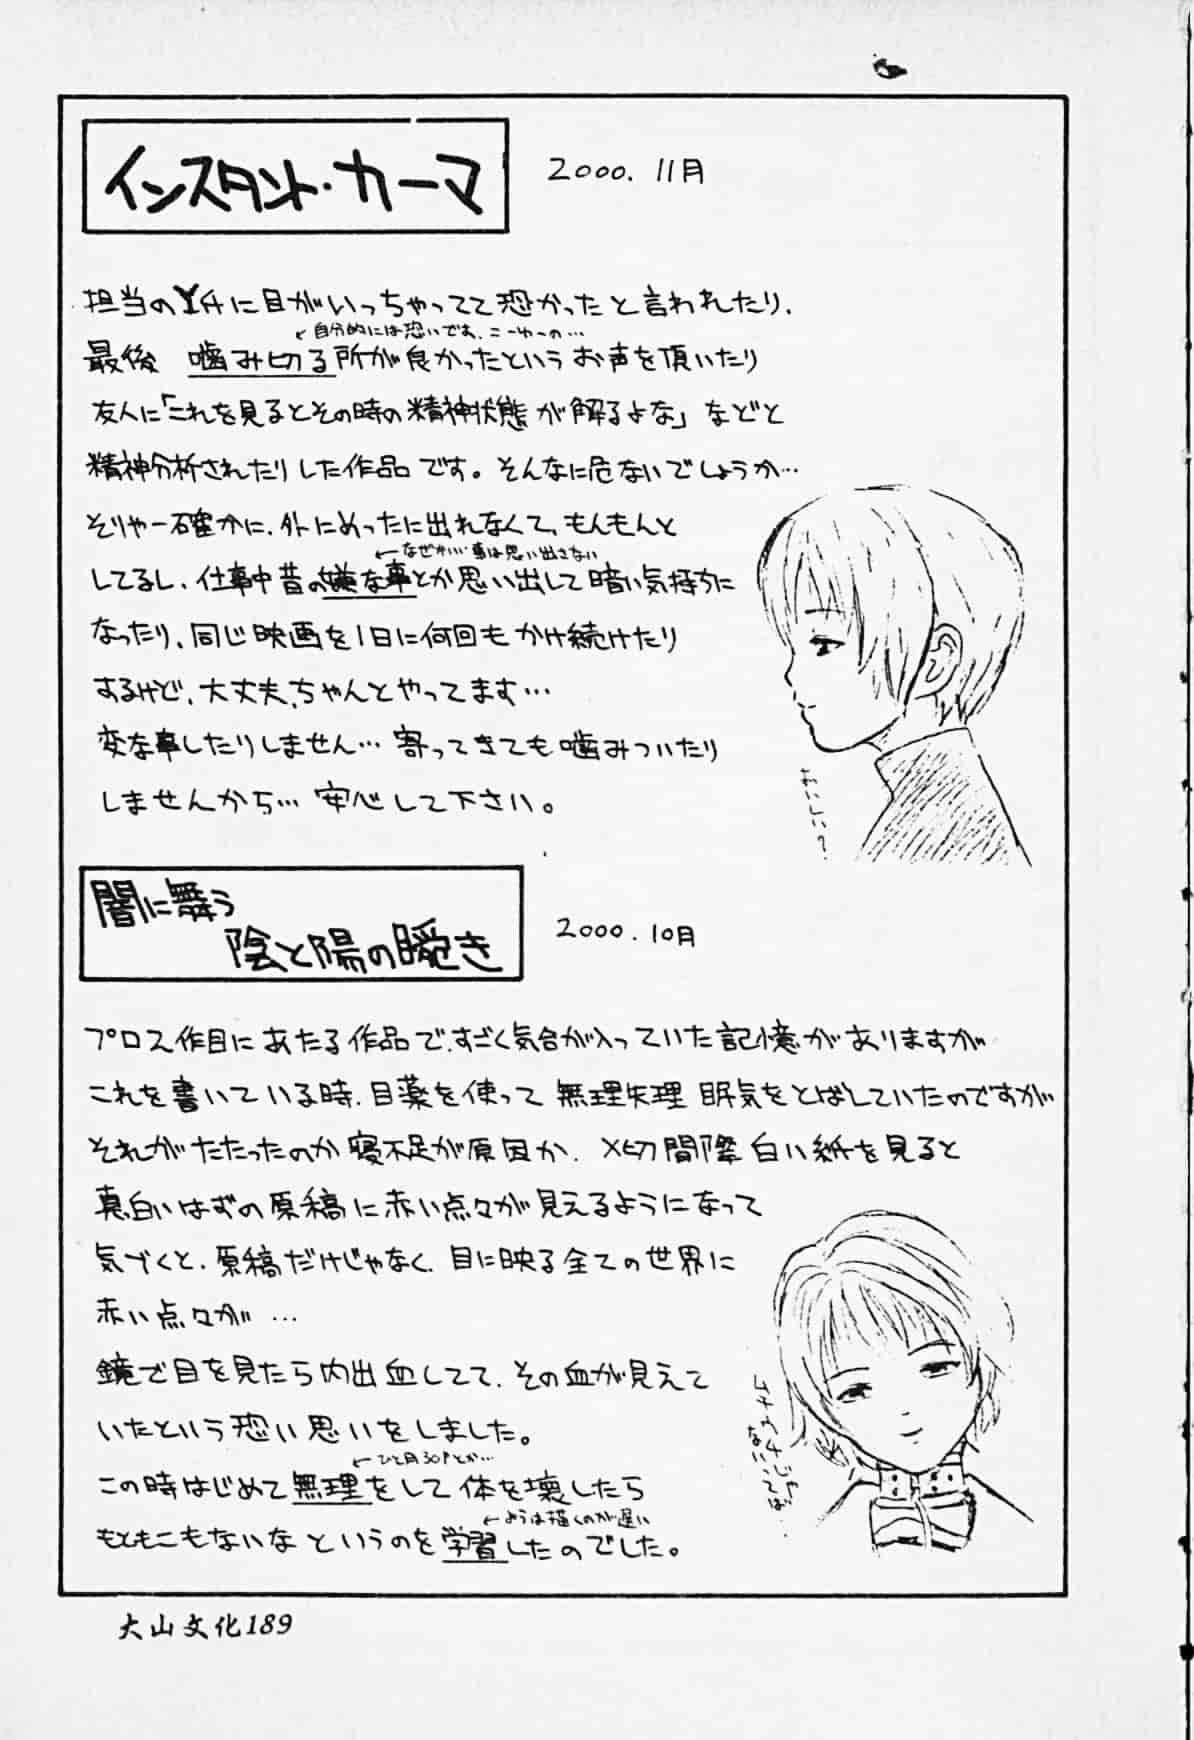 インスタント・カーマ
2000. 11月
担当のYサに目がいっちゃってて恐かったと言われたり、
←自分的には恐いです、こーゆーの…
最後 噛み切る所が良かったというお声を頂いたり
友人に「これを見るとその時の精神状態が解るよな」などと
精神分析されたりした作品です。そんなに危ないでしょうか…
そりゃー確かに、外にめったに出れなくて、もんもんと
←なぜかいい事は思い出さない
してるし、仕事中昔の嫌な事とか思い出して暗い気持ちに
なったり、同じ映画を1日に何回もかけ続けたり
するけど、大丈夫、ちゃんとやってます…
変な事したりしません… 寄ってきても噛みついたり
しませんから… 安心して下さい。
おいしい?
闇に舞う
陰と陽の瞬き
2000. 10月
プロ2作目にあたる作品で、すごく気合が入っていた記憶がありますが
これを書いている時、目薬を使って無理矢理 眠気をとばしていたのですが
それがたたったのか寝不足が原因か、〆切間際 白い紙を見ると
真白いはずの原稿に赤い点々が見えるようになって
気づくと、原稿だけじゃなく、目に映る全ての世界に
赤い点々が…
鏡で目を見たら内出血してて、その血が見えて
いたという恐い思いをしました。
←ひと月30Pとか…
この時はじめて無理をして体を壊したら
←ようは描くのが遅い
もともこもないな というのを学習したのでした。
ないってば…
大山文化189